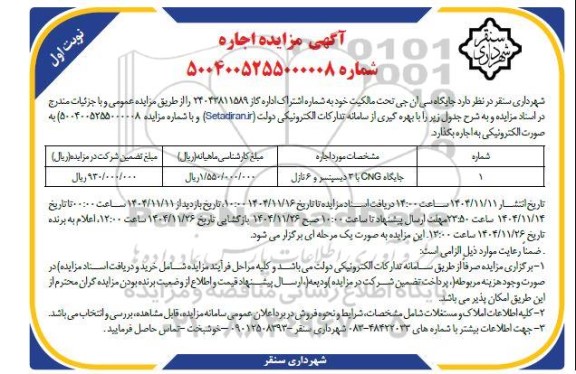 نوبت اول
آگهی مزایده اجاره
شماره ۵۰۰۴۰۰۵۲۵۵۰۰۰۰۰۸
شهرداری سنقر
شهرداری سنقر در نظر دارد جایگاه سی ان جی تحت مالکیت خود به شماره اشتراک اداره گاز ۲۳۰۴۳۸۱۱۵۸۹ را از طریق مزایده عمومی و با جزئیات مندرج
در اسناد مزایده و به شرح جدول زیر را با بهره گیری از سامانه تدارکات الکترونیکی دولت (Setadiran.ir) و با شماره مزایده ۵۰۰۴۰۰۵۲۵۵۰۰۰۰۰۸ به
صورت الکترونیکی به اجاره بگذارد.
شماره مشخصات مورد اجاره مبلغ کارشناسی ماهیانه (ریال) مبلغ تضمین شرکت در مزایده (ریال)
۱ جایگاه CNG با ۳ دیسپنسر و ۶ نازل ۱/۵۵۰/۰۰۰/۰۰۰ ریال ۹۳۰/۰۰۰/۰۰۰ ریال
تاریخ انتشار ۱۴۰۴/۱۱/۱۱ ساعت ۱۴:۰۰ دریافت اسناد مزایده تا تاریخ ۱۴۰۴/۱۱/۱۶ ۱۰:۰۰ تاریخ بازدید از ۱۴۰۴/۱۱/۱۱ ساعت ۰۰:۰۰ تا تاریخ
۱۴۰۴/۱۱/۱۴ ساعت ۲۳:۵۰ مهلت ارسال پیشنهاد تا ساعت ۱۰:۰۰ صبح ۱۴۰۴/۱۱/۲۶ بازگشایی تاریخ ۱۴۰۴/۱۱/۲۶ ساعت ۱۲:۰۰، اعلام به برنده
تاریخ ۱۴۰۴/۱۱/۲۶ ساعت ۱۳:۰۰. این مزایده به صورت یک مرحله ای برگزار می شود.
. ضمنا رعایت موارد ذیل الزامی است:
۱- برگزاری مزایده صرفا از طریق سامانه تدارکات الکترونیکی دولت می باشد و کلیه مراحل فرآیند مزایده شامل خرید و دریافت اسناد مزایده (در
صورت وجود هزینه مربوطه)، پرداخت تضمین شرکت در مزایده (ودیعه)، ارسال پیشنهاد قیمت و اطلاع از وضعیت برنده بودن مزایده گران محترم از
این طریق امکان پذیر می باشد.
۲- کلیه اطلاعات املاک و مستغلات شامل مشخصات، شرایط و نحوه فروش در برد اعلان عمومی سامانه مزایده، قابل مشاهده، بررسی و انتخاب می باشد.
۳- جهت اطلاعات بیشتر با شماره های ۴۸۴۲۲۰۳۳-۰۸۳ شهرداری سنقر -۰۹۰۱۲۵۰۸۳۹۳ -خوشبخت -تماس حاصل فرمایید .
شهرداری سنقر